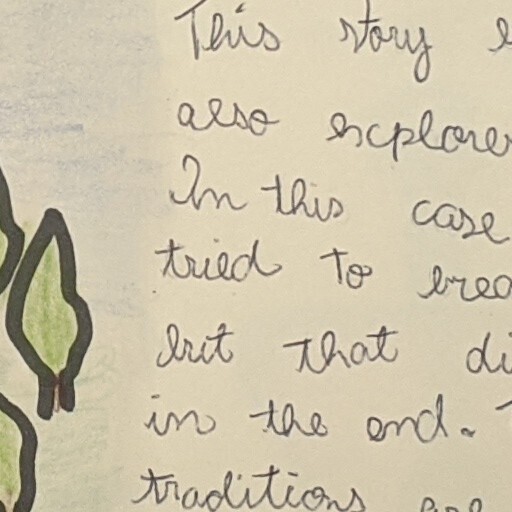 This story
also explore
In this case
tried to brea
but that di
in the end.
traditions are